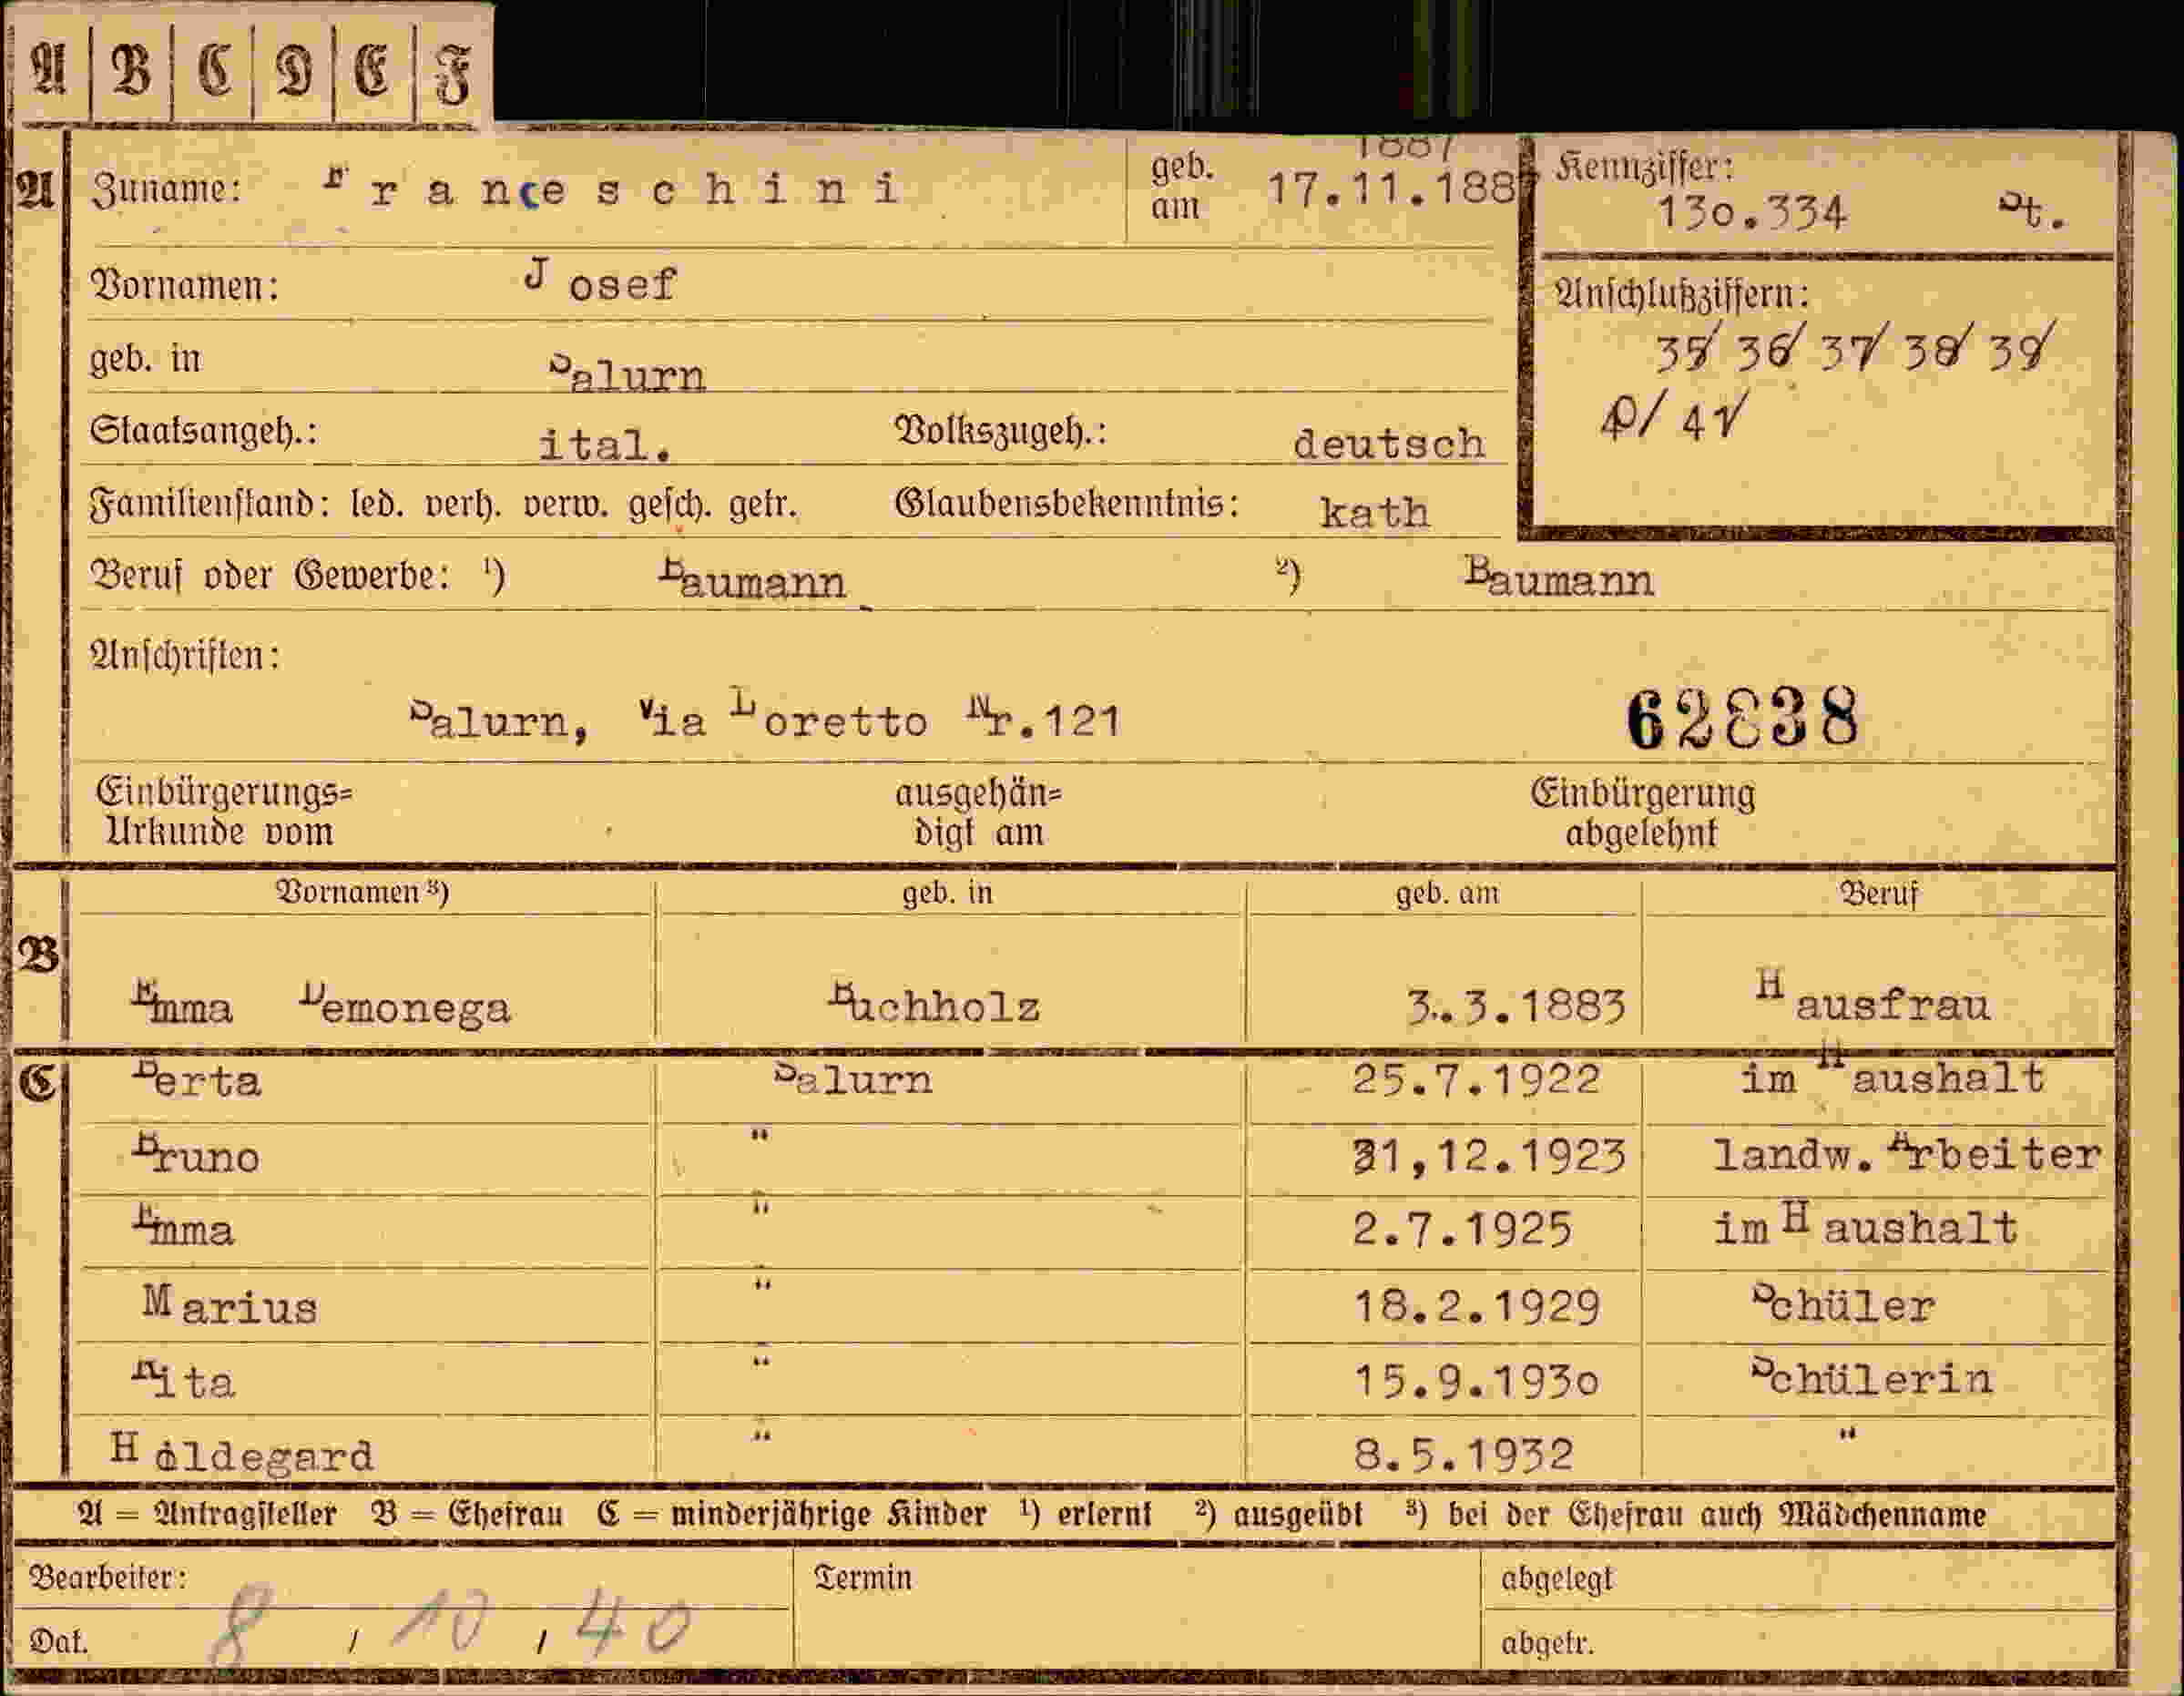 A B C D E F
A Zuname: Franceschini geb. am 17.11.188 1887 Kennziffer: 130.334 St.
Vornamen: Josef Anschlußziffern:
35/ 36/ 37/ 38/ 39/
geb. in Salurn
40/ 41/
Staatsangeh.: ital. Volkszugeh.: deutsch
Familienstand: led. verh. verw. gesch. getr. Glaubensbekenntnis: kath
Beruf oder Gewerbe: ¹) Baumann ²) Baumann
Anschriften:
Salurn, Via Loretto Nr.121 62838
Einbürgerungs= ausgehän= Einbürgerung
Urkunde vom digt am abgelehnt
Vornamen ³) geb. in geb. am Beruf
B
Emma Demonega Buchholz 3.3.1883 Hausfrau
C Berta Salurn 25.7.1922 im Haushalt
Bruno " 31,12.1923 landw. Arbeiter
Emma " 2.7.1925 im Haushalt
Marius " 18.2.1929 Schüler
" 15.9.1930 Schülerin
Hildegard " 8.5.1932 "
A = Antragsteller B = Ehefrau C = minderjährige Kinder ¹) erlernt ²) ausgeübt ³) bei der Ehefrau auch Mädchenname
Bearbeiter: Termin abgelegt
Dat. 8 / 10 / 40 abgetr.